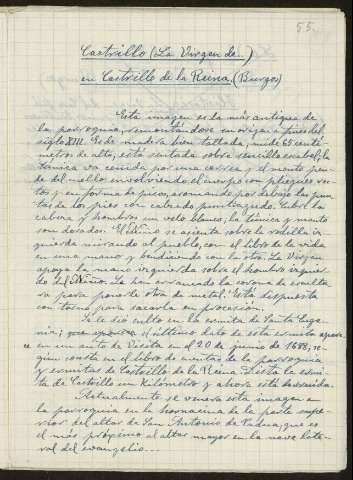 55.
Castrillo (La Virgen de...)
en Castrillo de la Reina, (Burgos)
Esta imagen es la más antigua de
la parroquia, remontándose su origen a fines del
siglo XIII. Es de madera bien tallada, mide 65 centí-
metros de alto, esta sentada sobre sencillo escabel; la
túnica va ceñida por una correa y el manto pen-
de del cuello envolviendo el cuerpo con pliegues rec-
tos y en forma de picos, asomando por debajo las pun-
tas de los pies con calzado puntiagudo. Cubre la
cabeza y hombros un velo blanco, la túnica y manto
son dorados. El Niño se asienta sobre la rodilla iz-
quierda mirando al pueblo, con el libro de la vida
en una mano y bendiciendo con la otra. La Virgen
apoya la mano izquierda sobre el hombro izquier-
do del Niño. Le han arrancado la corona de escultu-
ra para ponerle otra de metal. Está dispuesta
con torno para sacarla en procesión.
Se le dió culto en la ermita de Santa Euge-
nia; el último dato de esta ermita aparece
en un auto de Visita en el 20 de junio de 1688, se-
gún consta en el libro de cuentas de la parroquia
y ermitas de Castrillo de la Reina. Dista la ermi-
ta de Castrillo un kilómetro y ahora está derruida.
Actualmente se venera esta imagen en
la parroquia en la hornacina de la parte supe-
rior del altar de San Antonio de Padua, que es
el más próximo al altar mayor en la nave late-
ral del evangelio...